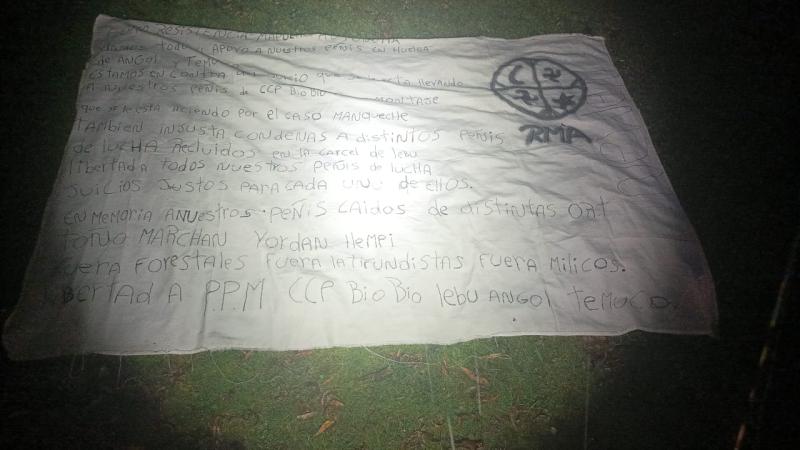 RESISTENCIA MAPUCHE
damos todo APOYO A NUESTROS PEÑIS EN HUELGA
de ANGOL TEMU
ESTAMOS EN CONTRA que se esta llevando
A NUESTROS PEÑIS de CCP BIO BIO MONTAJE
que se lo esta Aciendo POR EL CASO MANQUECHE
TAMBIEN INSUSTA CONDENAS A distintos PEÑIS
de LUCHA RECLUIDOS EN LA CARCEL de lebu
LIBERTAD A TODOS NUESTROS PEÑIS de LUCHA
JUICIOS JUSTOS PARA CADA UNO de ELLOS.
EN MEMORIA A NUESTROS PEÑIS CAIDOS de distintas ORT
TOÑO MARCHAN YORDAN LLEMPI
FUERA FORESTALES FUERA LATIFUNDISTAS FUERA MILICOS.
LIBERTAD A P.P.M CCP Bio Bio lebu ANGOL TEMUCO.
RMA